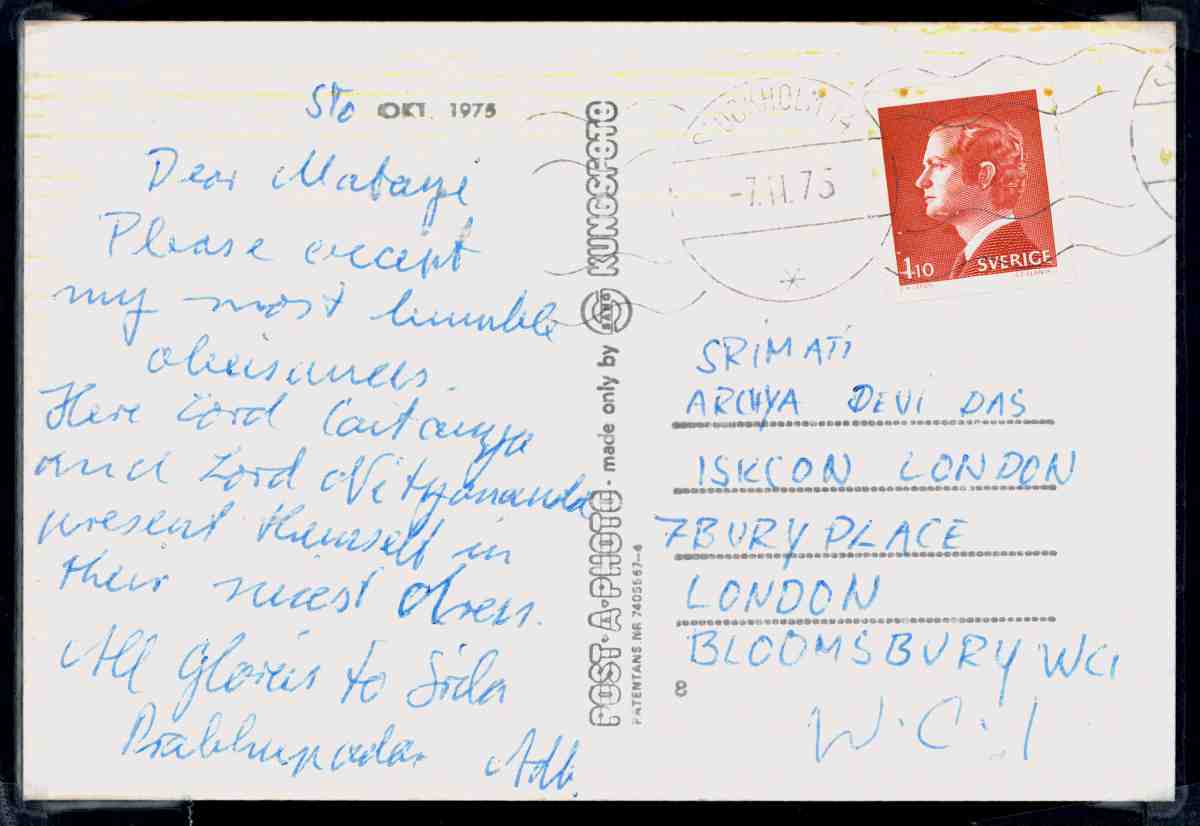 Sto OKT. 1975
Dear Mataye
Please except
my most humble
obeisances.
Here Lord Caitanya
and Lord Nityananda
present themself in
their nicest dress.
All Glories to Srila
Prabhupada.
KUNGSFOTO
made only by
POST·A·PHOTO
PATENTANS.NR 7405567-4
STOCKHOLM
-7.11.75
1.10 SVERIGE
SRIMATI
ARCHYA DEVI DAS
ISKCON LONDON
7 BURY PLACE
LONDON
BLOOMSBURY WC1
W.C.1
8